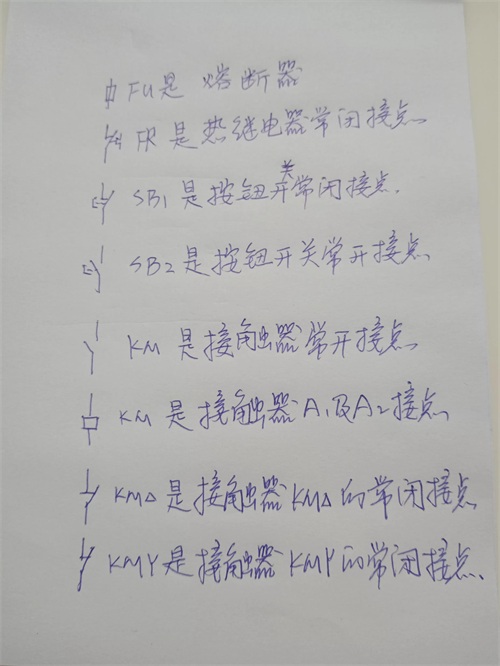 FU是 熔断器
FR是热继电器常闭接点.
SB1是按钮开关常闭接点.
SB2是按钮开关常开接点.
KM是接触器常开接点.
KM是接触器A1及A2接点.
KM△是接触器KM△的常闭接点
KMY是接触器KMY的常闭接点.